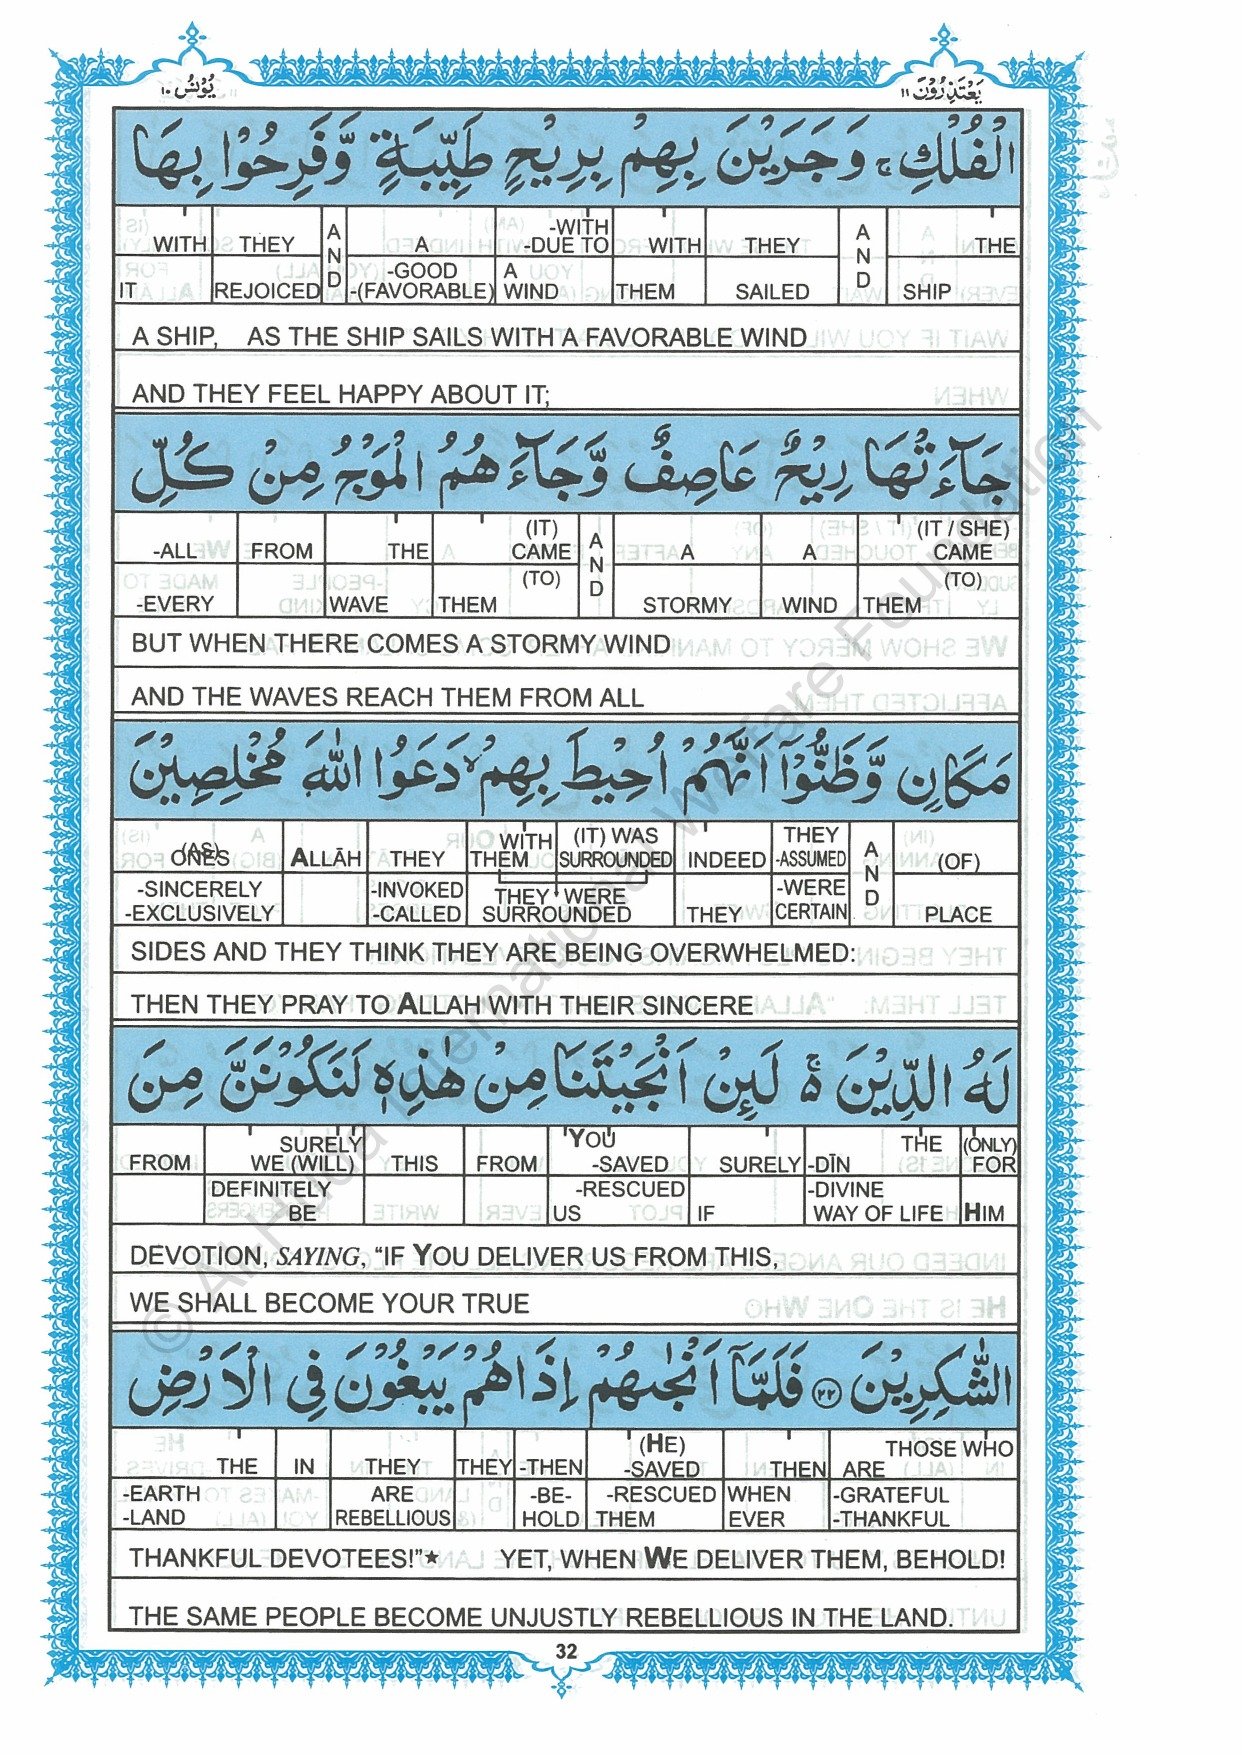 يَعْتَذِرُوْنَ ١١
يُوْنُس ١٠
الْفُلْكِ ۚ وَجَرَيْنَ بِهِمْ بِرِيْحٍ طَيِّبَةٍ وَّفَرِحُوْا بِهَا
WITH THEY AND A -WITH -DUE TO WITH THEY AND THE
IT REJOICED -GOOD -(FAVORABLE) A WIND THEM SAILED SHIP
A SHIP, AS THE SHIP SAILS WITH A FAVORABLE WIND
AND THEY FEEL HAPPY ABOUT IT;
جَآءَتْهَا رِيْحٌ عَاصِفٌ وَّجَآءَهُمُ الْمَوْجُ مِنْ كُلِّ
-ALL FROM THE (IT) CAME AND A A (IT / SHE) CAME
-EVERY WAVE (TO) THEM STORMY WIND (TO) THEM
BUT WHEN THERE COMES A STORMY WIND
AND THE WAVES REACH THEM FROM ALL
مَكَانٍ وَّظَنُّوْٓا اَنَّهُمْ اُحِيْطَ بِهِمْ ۙ دَعَوُا اللّٰهَ مُخْلِصِيْنَ
(AS) ONES ALLĀH THEY WITH THEM (IT) WAS SURROUNDED INDEED THEY -ASSUMED AND (OF)
-SINCERELY -EXCLUSIVELY -INVOKED -CALLED THEY WERE SURROUNDED THEY -WERE CERTAIN PLACE
SIDES AND THEY THINK THEY ARE BEING OVERWHELMED:
THEN THEY PRAY TO ALLAH WITH THEIR SINCERE
لَهُ الدِّيْنَ ۚ۬ لَىِٕنْ اَنْجَيْتَنَا مِنْ هٰذِهٖ لَنَكُوْنَنَّ مِنَ
FROM SURELY WE (WILL) THIS FROM YOU -SAVED SURELY THE -DĪN (ONLY) FOR
DEFINITELY BE -RESCUED US IF -DIVINE WAY OF LIFE HIM
DEVOTION, SAYING, “IF YOU DELIVER US FROM THIS,
WE SHALL BECOME YOUR TRUE
الشّٰكِرِيْنَ ٢٢ فَلَمَّآ اَنْجٰىهُمْ اِذَا هُمْ يَبْغُوْنَ فِى الْاَرْضِ
THE IN THEY THEY -THEN (HE) -SAVED THEN THOSE WHO ARE
-EARTH -LAND ARE REBELLIOUS -BE- HOLD -RESCUED THEM WHEN EVER -GRATEFUL -THANKFUL
THANKFUL DEVOTEES!”★ YET, WHEN WE DELIVER THEM, BEHOLD!
THE SAME PEOPLE BECOME UNJUSTLY REBELLIOUS IN THE LAND.
32
© Al-Huda International Welfare Foundation